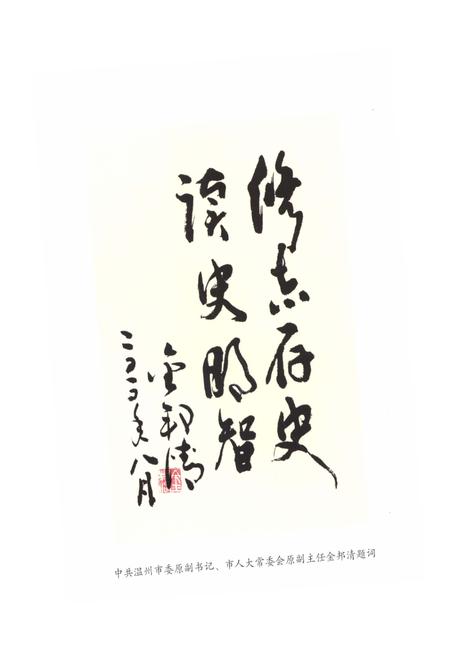 修志存史
读史明智
金邦清
二〇一〇年八月
中共温州市委原副书记、市人大常委会原副主任金邦清题词